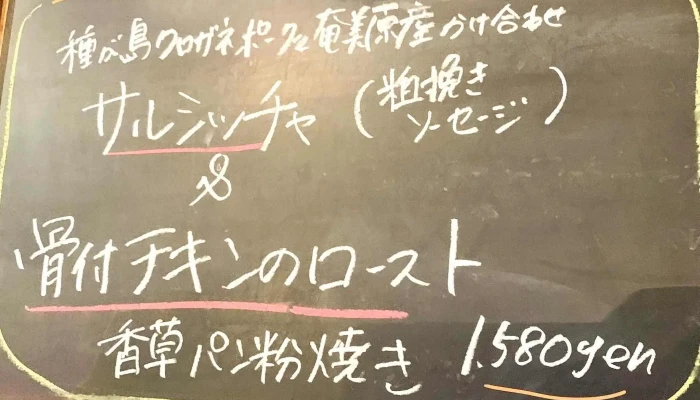 種が島クロザネポークと奄美原産かけ合わせ
サルシッチャ（粗挽きソーセージ）
&
骨付チキンのロースト
香草パン粉焼き 1.580yen